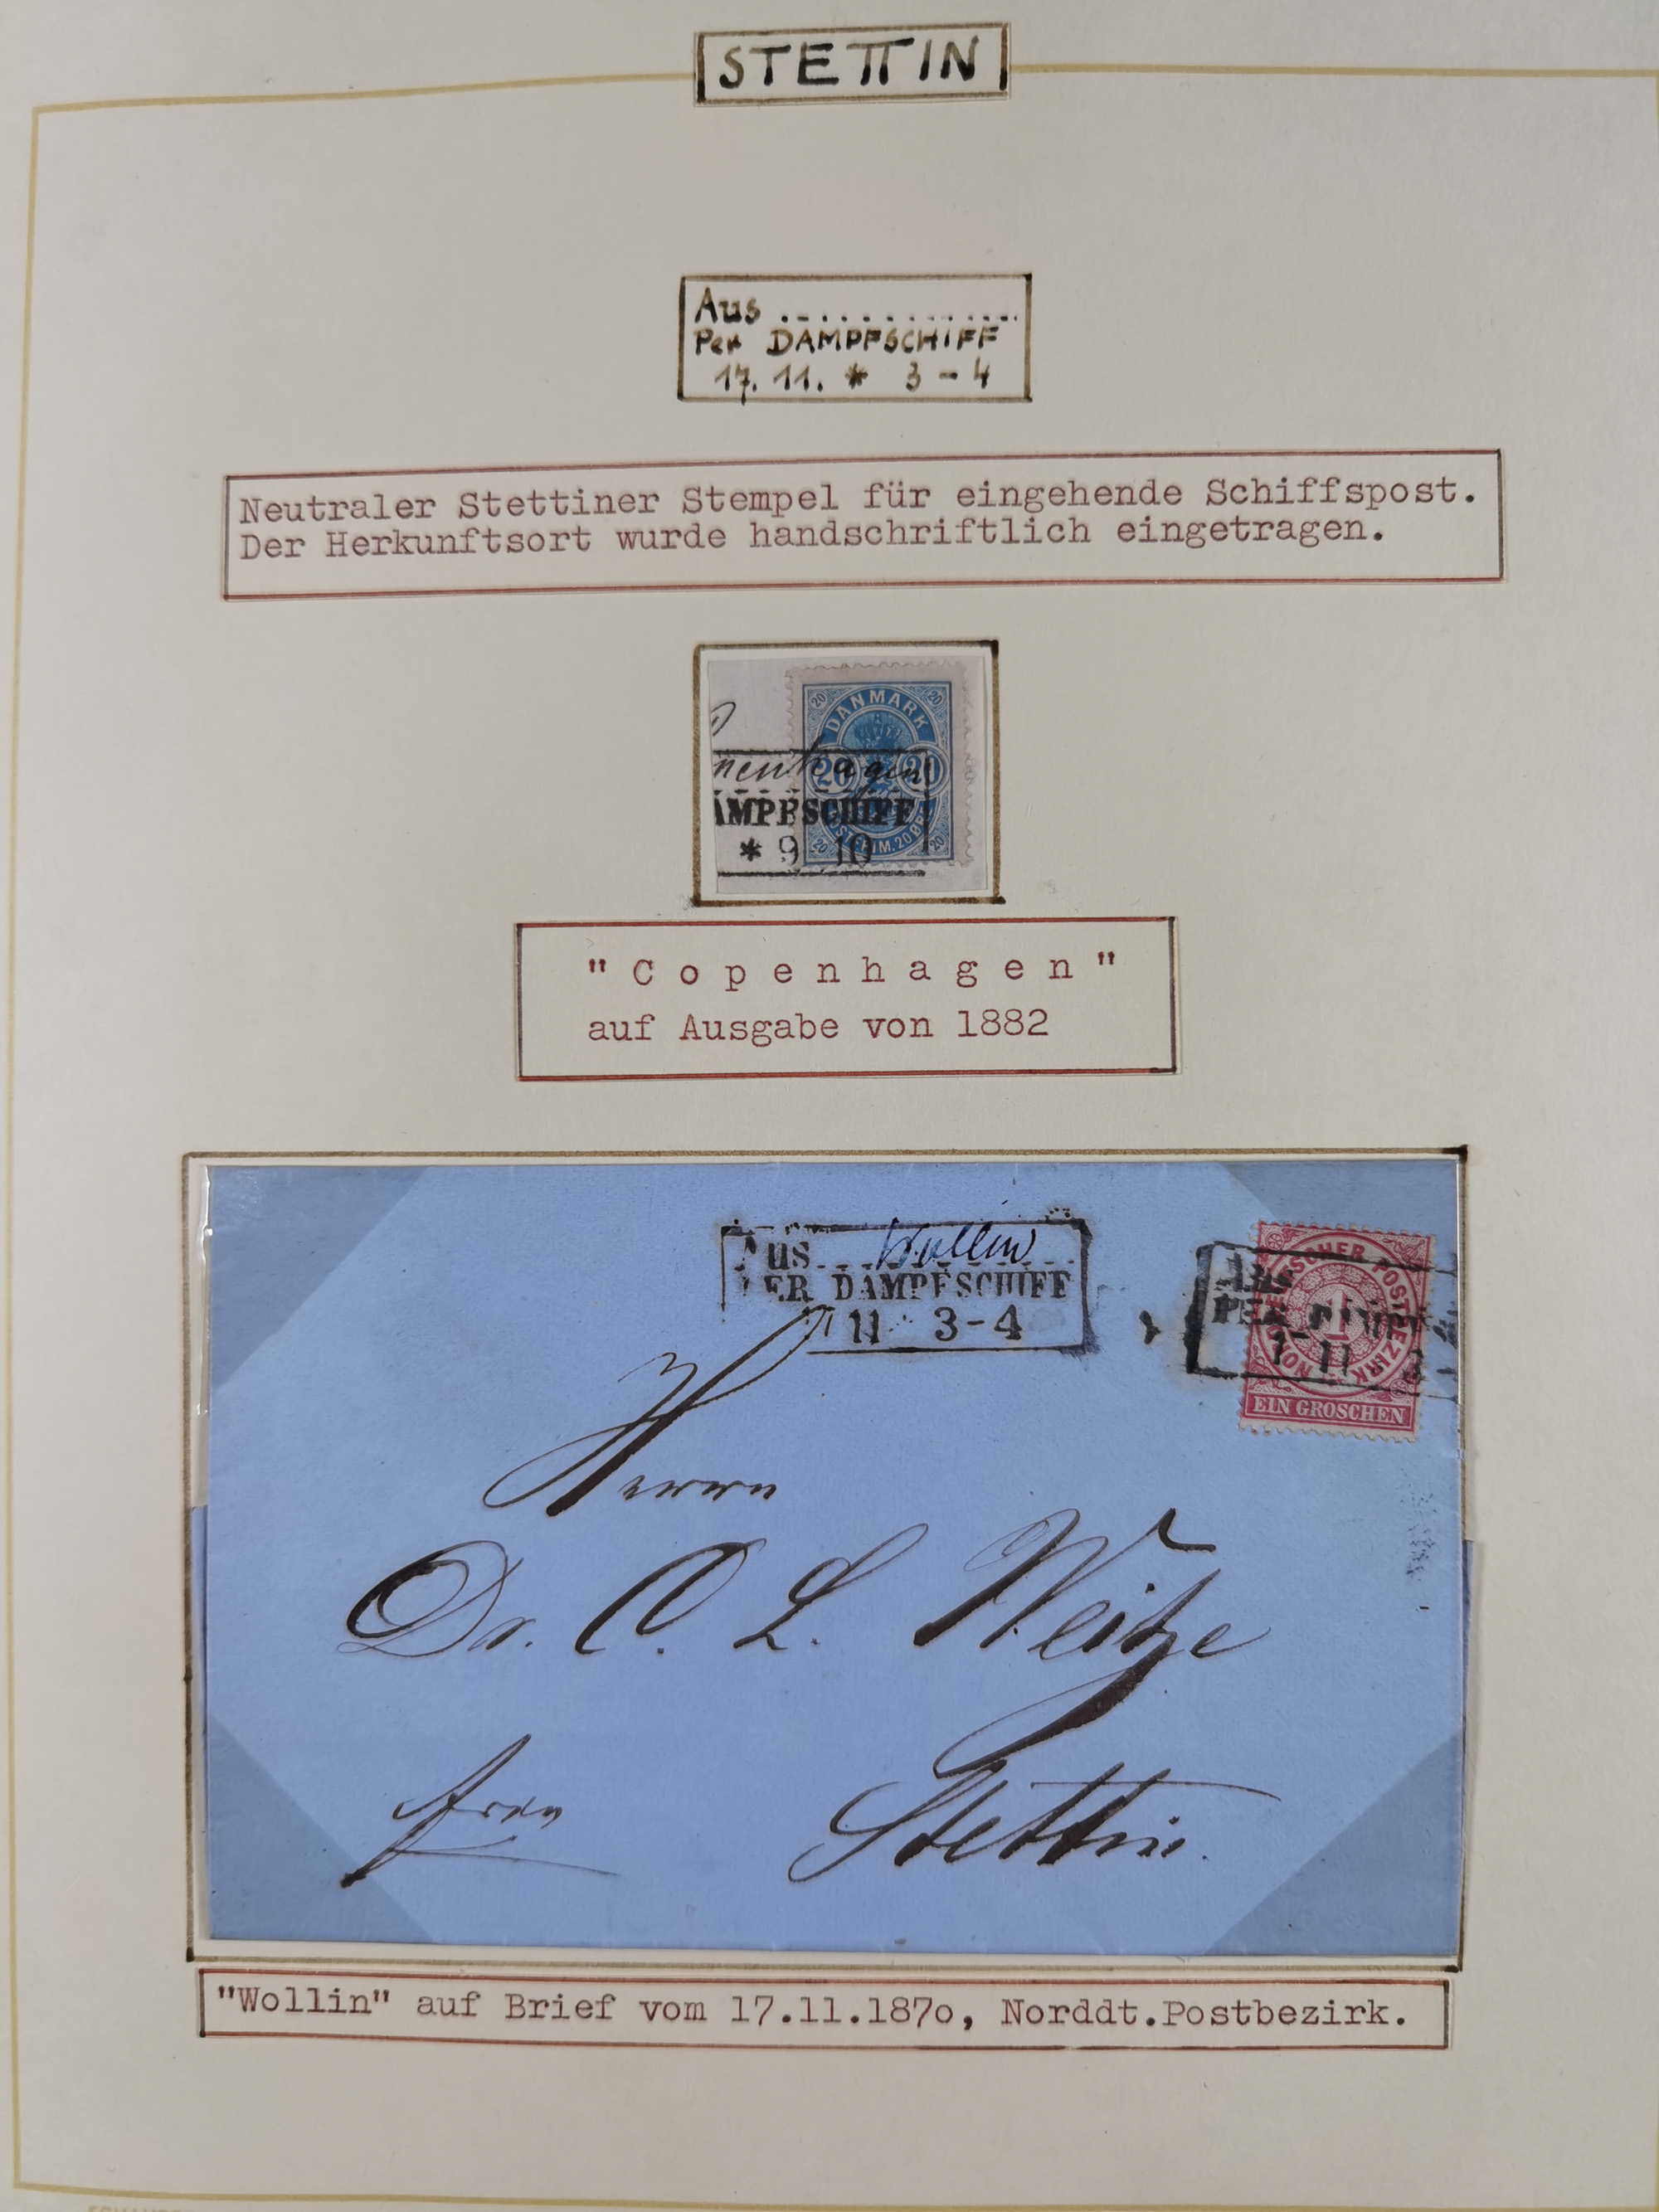 STETTIN
Aus ..............
Per DAMPFSCHIFF
17. 11. * 3 - 4
Neutraler Stettiner Stempel für eingehende Schiffspost.
Der Herkunftsort wurde handschriftlich eingetragen.
DANMARK
20 20
20 20
nenhagen
AMPFSCHIFF
POSTFRIM. 20 ØRE
20 20
* 9 10
"Copenhagen"
auf Ausgabe von 1882
Aus Wollin
PER DAMPFSCHIFF
11 3-4
NORDDEUTSCHER POSTBEZIRK
1
Aus
PER
11
EIN GROSCHEN
Herrn
Dr. C. L. Weitze
Stettin.
"Wollin" auf Brief vom 17.11.187o, Norddt.Postbezirk.